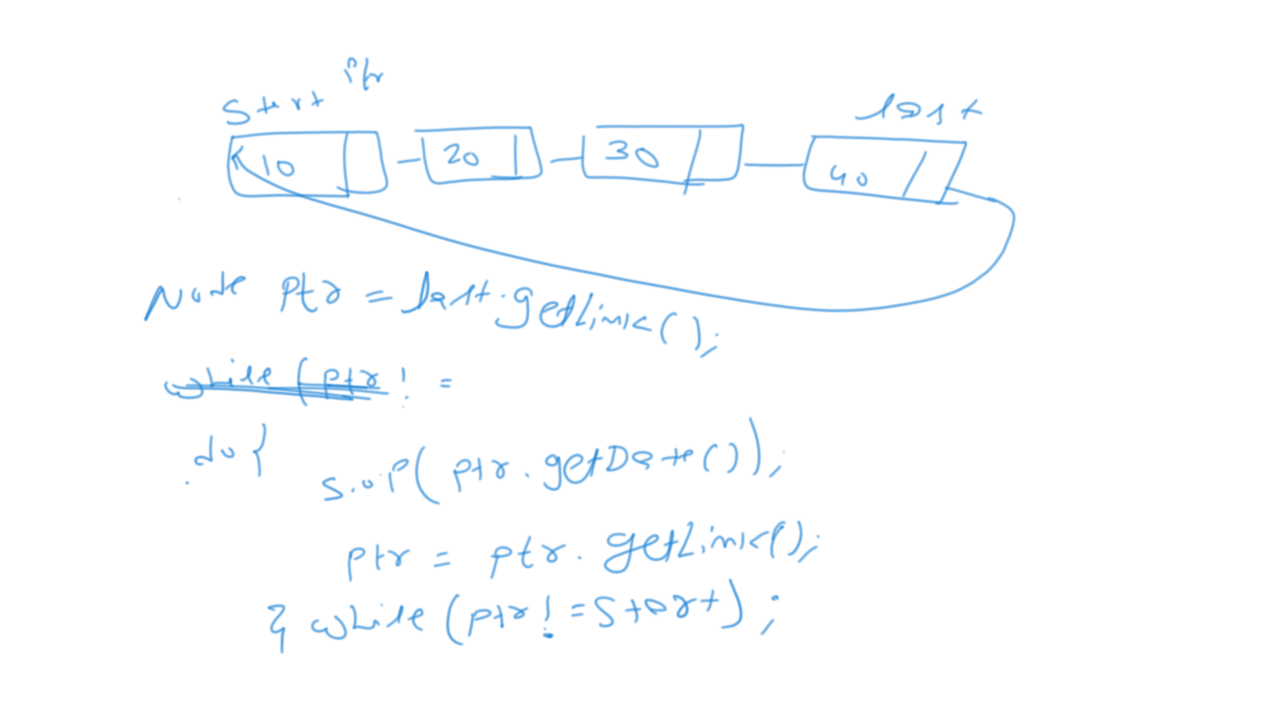 Start ptr last
10 20 30 40
Node ptr = last.getLink();
while (ptr! =
do {
S.o.P(ptr.getData());
ptr = ptr.getLink();
} while (ptr! = Start);